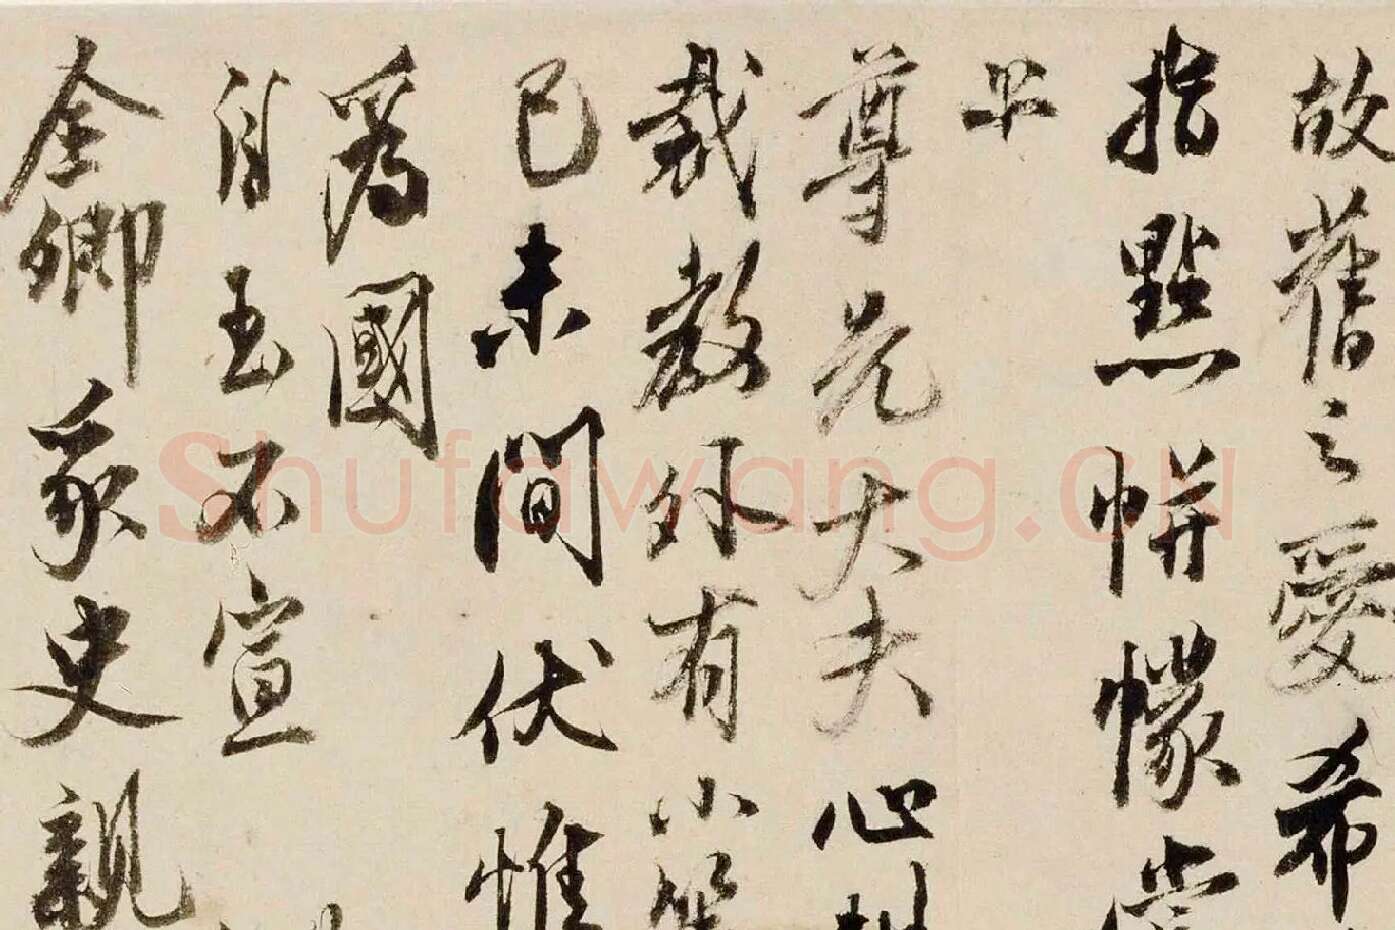 故舊之愛希
指點帡幪當
早
尊兄大夫心相
裁教外有小簡
已未間伏惟
為國
自玉不宣
金卿家史親
Shufawang.CN